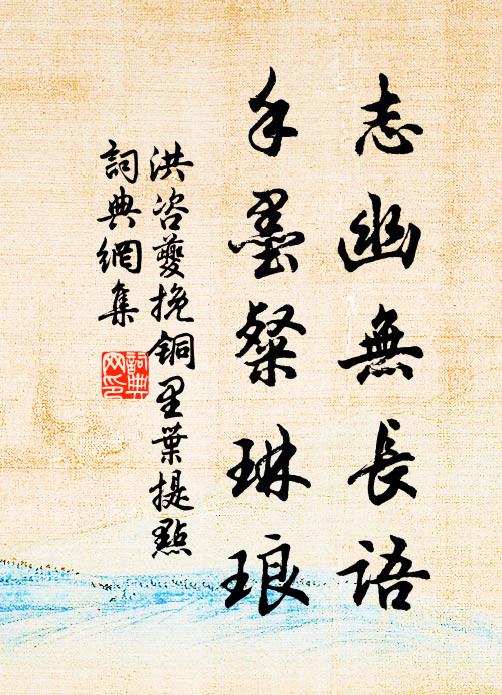 志幽無長语
手墨粲琳琅
洪咨夔挽铜里葉提點
詞典網集
詞典网印